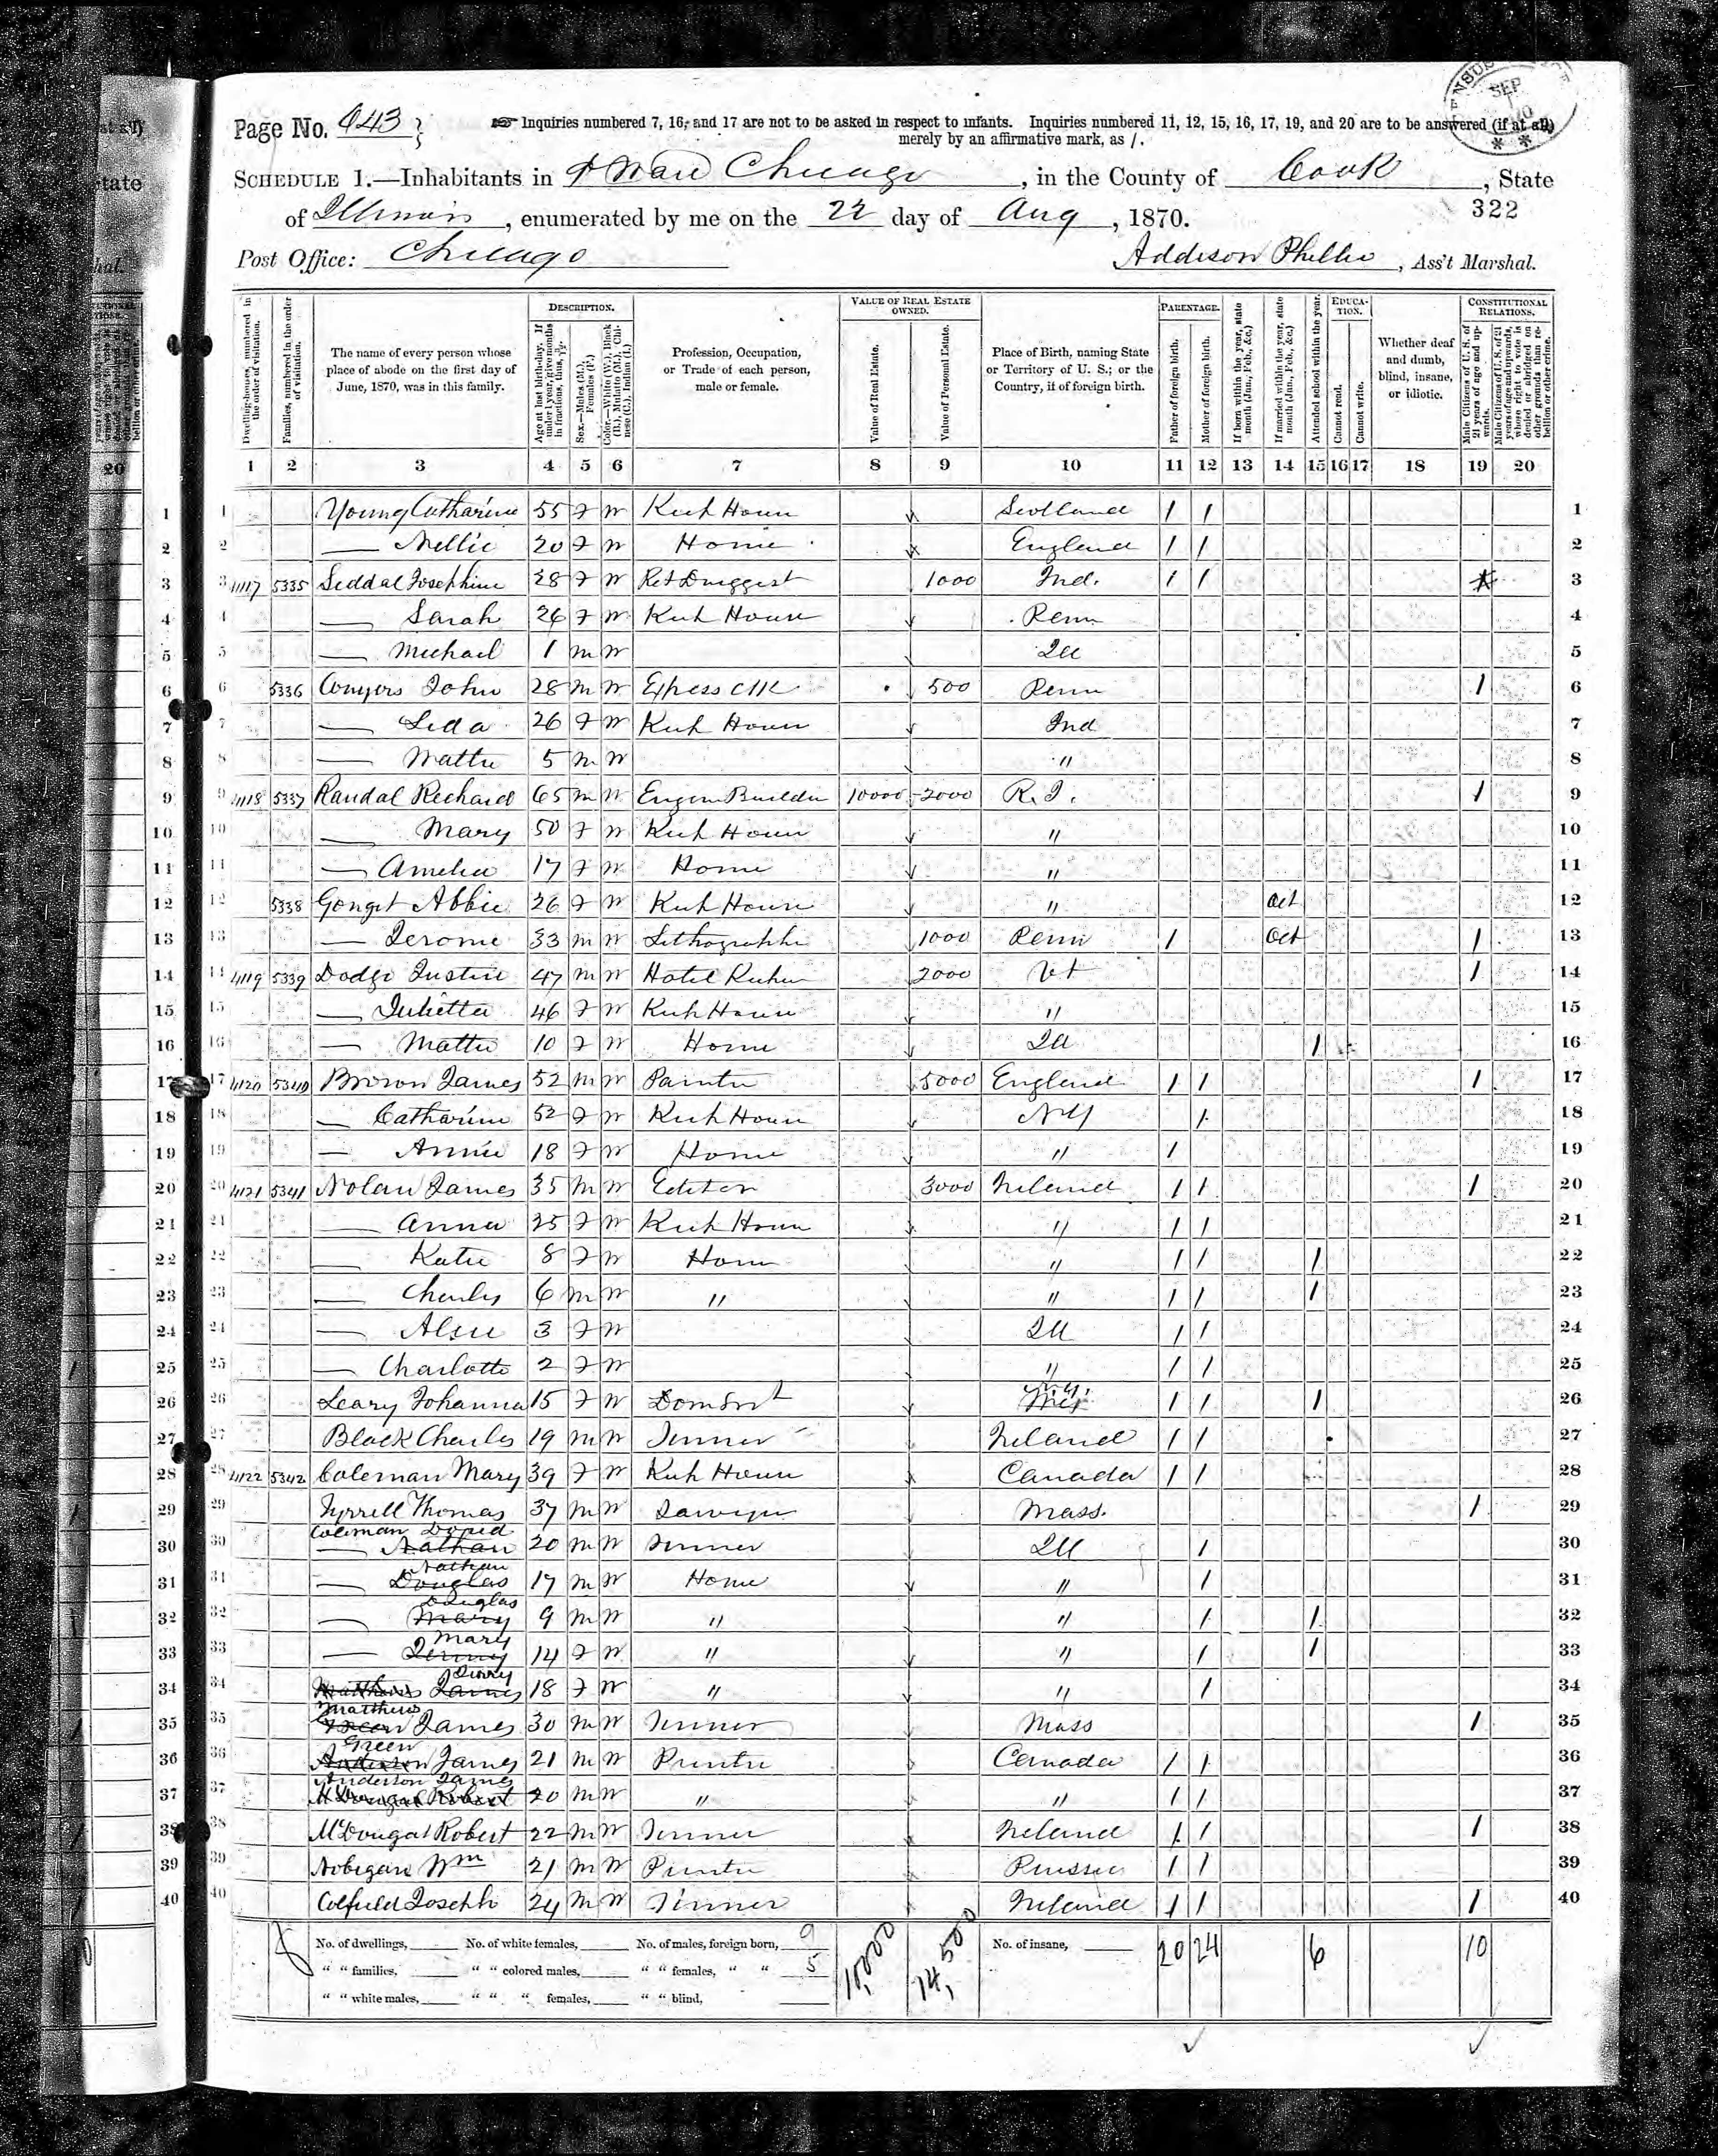 Page No. 643
Inquiries numbered 7, 16, and 17 are not to be asked in respect to infants. Inquiries numbered 11, 12, 15, 16, 17, 19, and 20 are to be answered (if at all)
merely by an affirmative mark, as /.
SCHEDULE 1.—Inhabitants in Ward Chicago, in the County of Cook, State
322
of Illinois, enumerated by me on the 22 day of Aug, 1870.
Post Office: Chicago Addison, Ass't Marshal.
Dwelling-houses, numbered in the order of visitation.
Families, numbered in the order of visitation.
The name of every person whose place of abode on the first day of June, 1870, was in this family.
DESCRIPTION.
Age at last birth-day. If under 1 year, give months in fractions, thus, 3/12.
Sex.—Males (M.), Females (F.)
Color.—White (W.), Black (B.), Mulatto (M.), Chinese (C.), Indian (I.)
Profession, Occupation, or Trade of each person, male or female.
VALUE OF REAL ESTATE OWNED.
Value of Real Estate.
Value of Personal Estate.
Place of Birth, naming State or Territory of U. S.; or the Country, if of foreign birth.
PARENTAGE.
Father of foreign birth.
Mother of foreign birth.
If born within the year, state month (Jan., Feb., &c.)
If married within the year, state month (Jan., Feb., &c.)
Attended school within the year.
EDUCATION.
Cannot read.
Cannot write.
Whether deaf and dumb, blind, insane, or idiotic.
CONSTITUTIONAL RELATIONS.
Male Citizens of U. S. of 21 years of age and upwards.
Male Citizens of U. S. of 21 years of age and upwards, whose right to vote is denied or abridged on other grounds than rebellion or other crime.
1 2 3 4 5 6 7 8 9 10 11 12 13 14 15 16 17 18 19 20
1 Young Catharine 55 F W Keep House Scotland / / 1
2 — Nellie 20 F W Home England / / 2
3 4117 5335 Siddal Josephine 28 F W Ret Druggist 1000 Ind. / / 3
4 — Sarah 26 F W Keep House Penn 4
5 — Michael 1 M W Ill 5
6 5336 Conyers John 28 M W Express Clk 500 Penn / 6
7 — Leda 26 F W Keep House Ind 7
8 — Mattie 5 M W " 8
9 4118 5337 Randal Richard 65 M W Engine Builder 10000 2000 R.I. / 9
10 — Mary 50 F W Keep House " 10
11 — Amelia 17 F W Home " 11
12 5338 Abbie 26 F W Keep House " Oct 12
13 — Jerome 33 M W Lithographer 1000 Penn / Oct / 13
14 4119 5339 Dodge Justin 47 M W Hotel Keeper 2000 Vt / 14
15 — Julietta 46 F W Keep House " 15
16 — Mattie 10 F W Home Ill / 16
17 4120 5340 Brown James 52 M W Painter 5000 England / / / 17
18 — Catharine 52 F W Keep House NY / 18
19 — Annie 18 F W Home " / 19
20 4121 5341 Nolan James 35 M W Editor 3000 Ireland / / / 20
21 — Anna 25 F W Keep House " / / 21
22 — Katie 8 F W Home " / / / 22
23 — Charles 6 M W " " / / / 23
24 — Alsie 3 F W Ill / / 24
25 — Charlotte 2 F W " / / 25
26 Leary Johanna 15 F W Dom Srvt N.Y. / / / 26
27 Black Charles 19 M W Tinner Ireland / / 27
28 4122 5342 Coleman Mary 39 F W Keep House Canada / / 28
29 Tyrrell Thomas 37 M W Lawyer Mass. / 29
30 Coleman David 20 M W Tinner Ill / 30
31 — Nathan 17 M W Home " / 31
32 — Douglas 9 M W " " / / 32
33 — Mary 14 F W " " / / 33
34 Jenny 18 F W " " / 34
35 Matthews James 30 M W Tinner Mass / 35
36 Green James 21 M W Printer Canada / / 36
37 Anderson James 20 M W " " / / 37
38 McDougal Robert 22 M W Tinner Ireland / / / 38
39 Wm 21 M W Printer Prussia / / 39
40 Joseph 24 M W Tinner Ireland / / / 40
No. of dwellings, No. of white females, No. of males, foreign born, 9 10,000 14,500 No. of insane, 20 24 6 10
" " families, " " colored males, " " females, " " 5
" " white males, " " " females, " " blind,